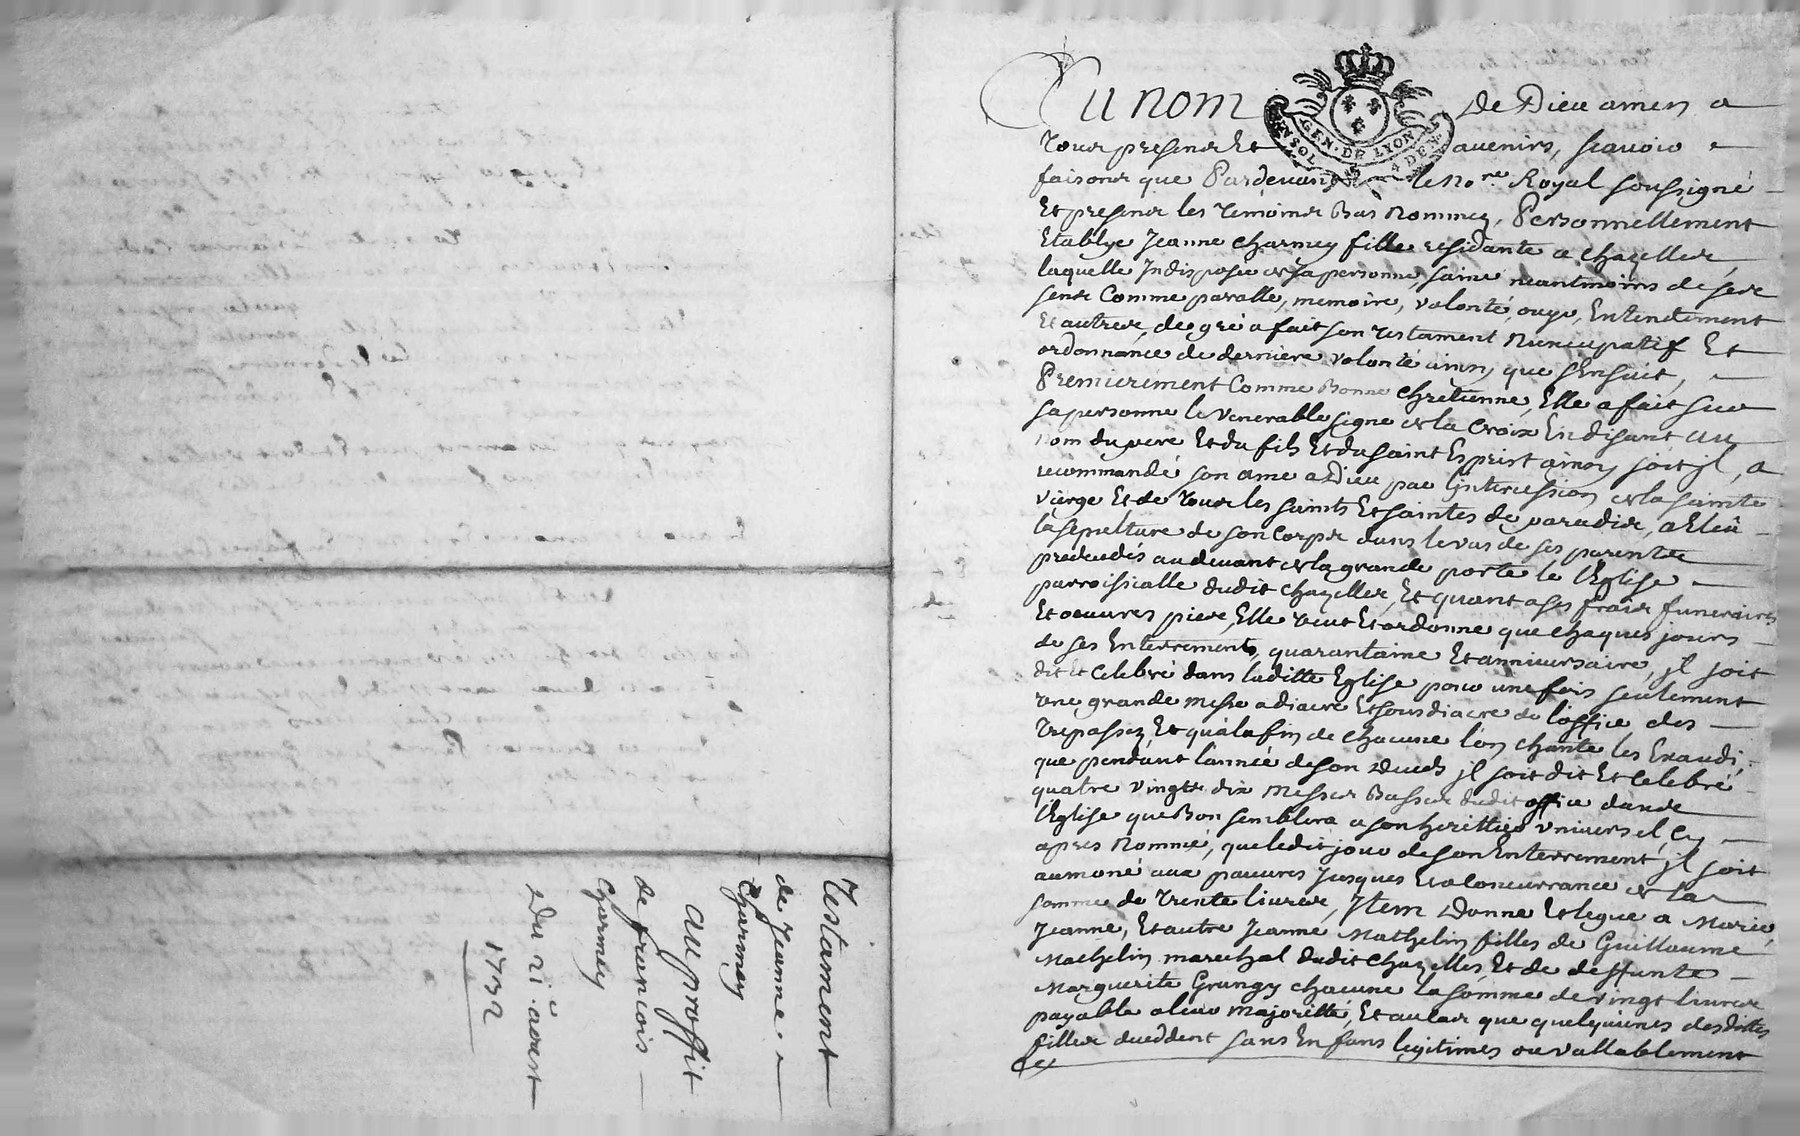 Testament
de Jeanne
Charmey
au proffit
de francois
Charmey
Du 21e aoust
1732
Au nom de Dieu amen a
GEN. DE LYON
Tous presens Et avenirs, scavoir
faisons que Pardevant le No.re Royal soussigné
Et presens les temoins Bas Nommez, Personnellement
Etablye Jeanne Charmey fille residante a Chazelles,
laquelle Indisposée de sa personne, saine neantmoins de ses
sens Comme parolle, memoire, volonté, ouye, Entendement
Et autres, de gré a fait son testament Nuncupatif Et
ordonnance de derniere volonté ainsy que s'Ensuit,
Premierement Comme Bonne Chretienne, Elle a fait sur
sa personne le venerable signe de la Croix En disant au
nom du pere Et du fils Et du saint Esprit ainsy soit jl, a
recommandé son ame a Dieu par l'jntercession de la sainte
vierge Et de tous les saints Et saintes de paradis, a Eleu
la sepulture de son Corps dans le vas de ses parents
predecedés au devant de la grande porte de l'Eglise
parroissialle dudit Chazelles, Et quant a ses frais funeraires
Et oeuvres pies, Elle veut Et ordonne que chaques jours
de ses Enterrements, quarantaine Et anniversaire, jl soit
dit Et Celebré dans laditte Eglise pour une fois seulement
une grande messe a diacre Et sousdiacre de l'office des
trepassez, Et qu'a la fin de chacune l'on chante les Exaudi,
que pendant l'année de son Deuds jl soit dit Et Celebré
quatre vingts dix messes Basses dudit office dans
l'Eglise que Bon semblera a son herittier vniversel Cy
apres Nommé, que le dit jour de son Enterrement jl soit
aumoné aux pauvres jusques Et a Concurrance de la
somme de trente livres, Jtem Donne Et legue a Marie,
Jeanne, Et autre Jeanne Mathelin filles de Guillaume
Mathelin marechal dudit Chazelles, Et de deffunte
Marguerite Grangy chacune la somme de vingt livres
payable a leur Majorité, Et au cas que quelqu'unes desdittes
filles decedent sans Enfans legitimes ou vallablement